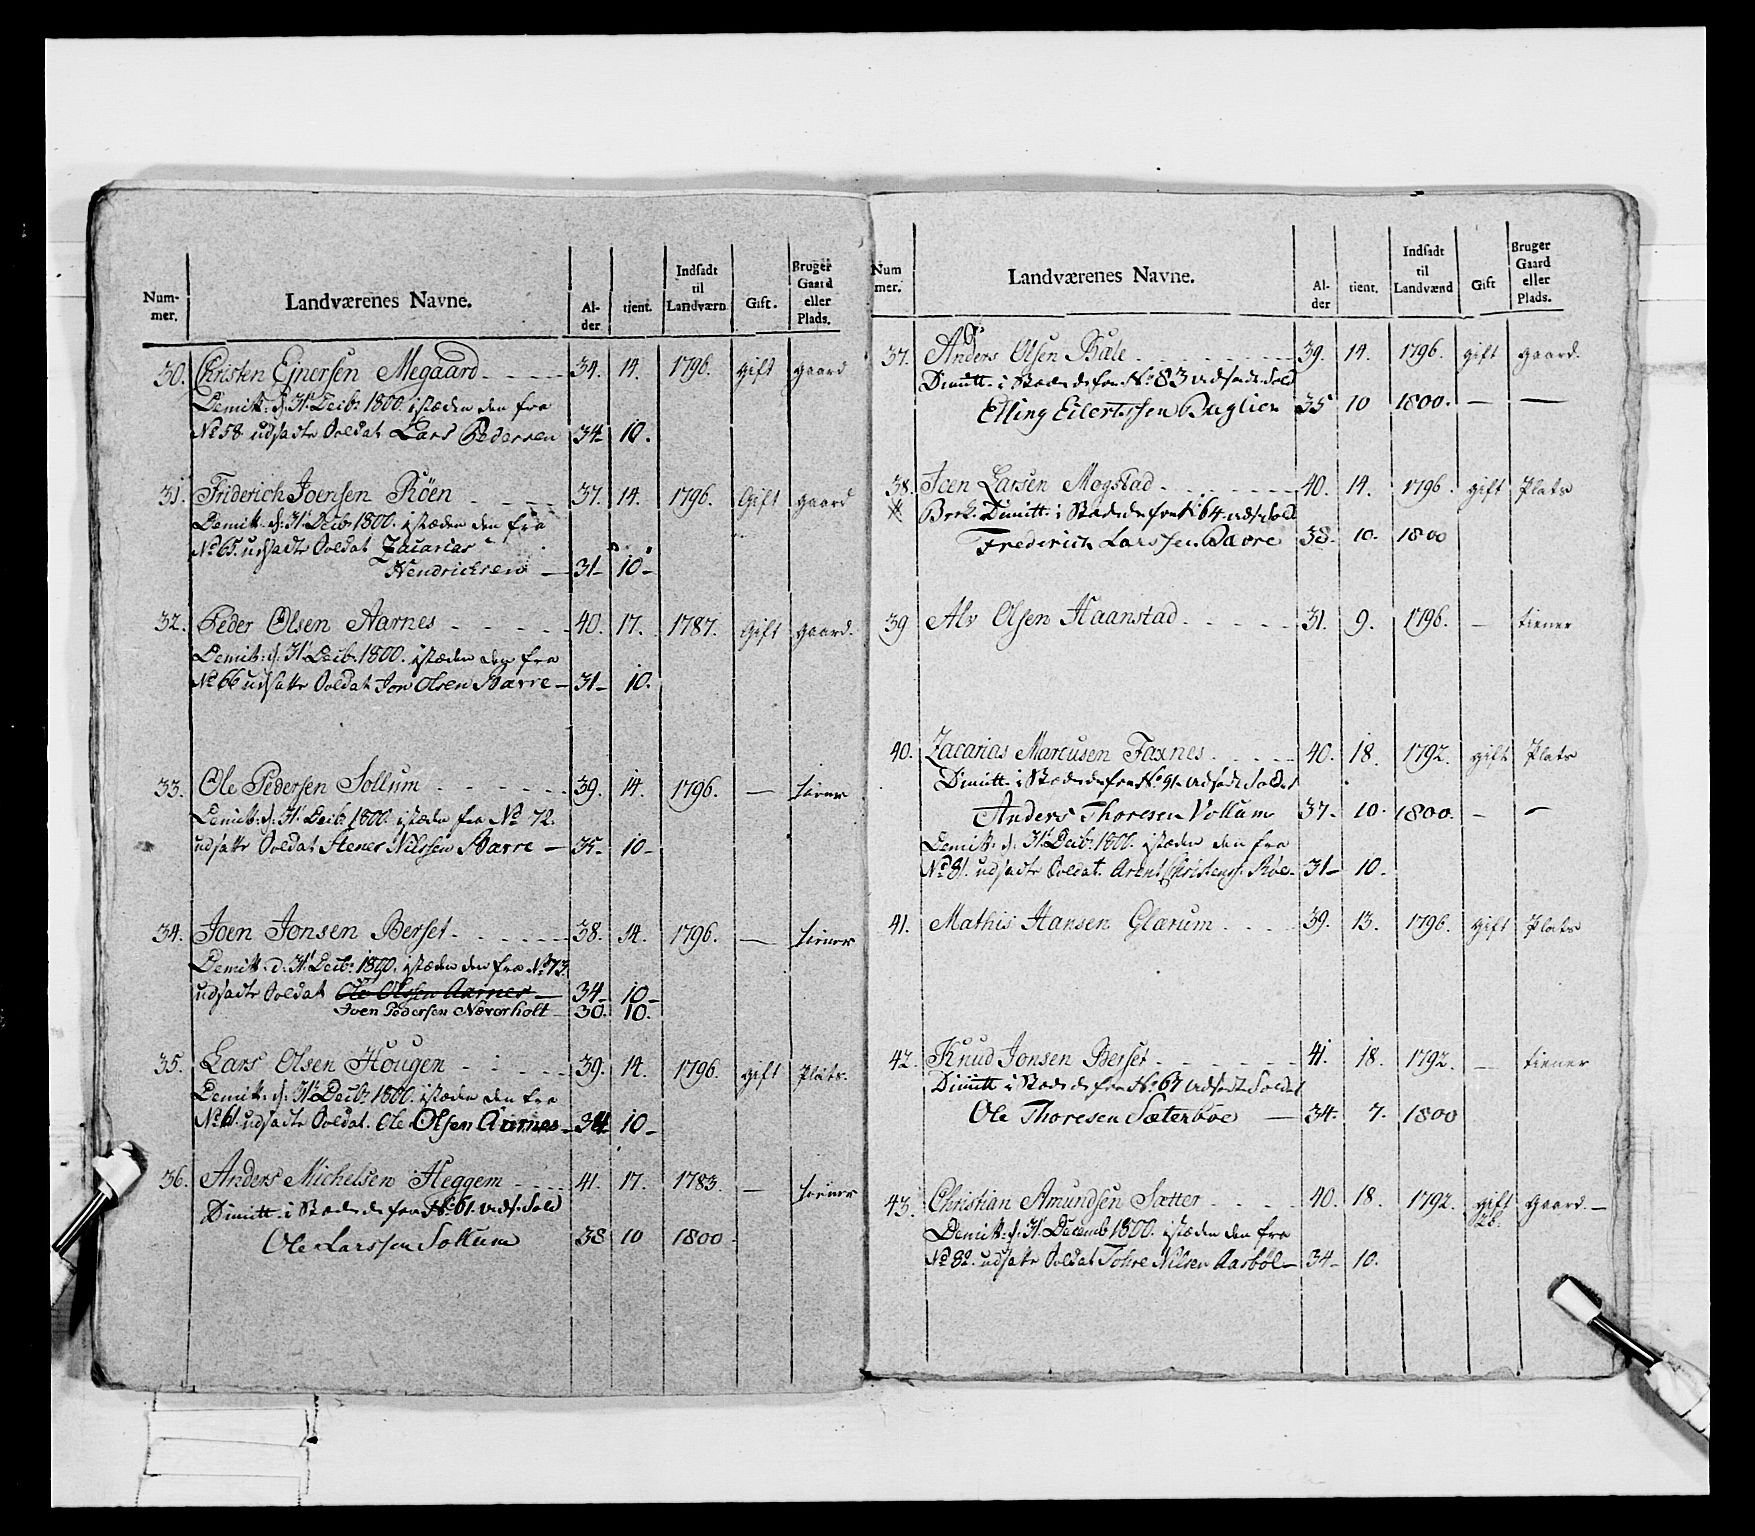 Num-
mer.
Landværenes Navne.
Al-
der
tient.
Indsadt
til
Landværn
Gift.
Bruger
Gaard
eller
Plads.
30. Christen Ejnersen Megaard 34. 14. 1796. gift gaard
Demitt. d. 31 Decbr 1800. istæden den fra
No 58 udsadte Soldat Lars Pedersen 34 10.
31. Friderich Joensen Röen 37. 14. 1796. Gift gaard
Demitt. d. 31 Decbr 1800. istæden den fra
No 65 udsadte Soldat Zacarias
Hendricksen 31 10
32. Peder Olsen Aarnes 40. 17. 1787. Gift gaard.
Demitt. d. 31 Decbr 1800. istæden den fra
No 66 udsatte Soldat Jon Olsen Bævre 31 10.
33. Ole Pedersen Sollum 39. 14. 1796. — tiener
Demitt. d. 31 Decbr 1800. istæden fra No 72.
udsatte Soldat Stener Nilssen Bævre 35 10
34. Joen Jonsen Berset 38. 14. 1796. — tiener
Demitt. d. 31 Decbr 1800. istæden den fra No 73.
udsadte Soldat Ole Olsen Aarnes 34 10
Joen Pedersen Næverholt 30. 10.
35. Lars Olsen Hougen 39. 14. 1796. gift Plats.
Demitt. d. 31 Decbr 1800. istæden den fra
No 61. udsadte Soldat. Ole Olsen Aarnes 34 10
36. Anders Michelsen Heggem 41. 17. 1783. — tiener
Dimitt. i Stæden de fra No 61. uds. Sold
Ole Larssen Sollum 38 10 1800
Num
mer.
Landværenes Navne.
Al-
der
tient.
Indsadt
til
Landvænd
Gift
Bruger
Gaard
eller
Plads.
37. Anders Olsen Bale 39. 14. 1796. gift gaard.
Dimitt. i Stæden de fra No 83 udsadte Sold
Elling Eilertssen Buglien 35 10 1800. — —
38. Joen Larsen Mogstad 40. 14. 1796. gift Plats
Dimitt. i Stæden de fra No 64 udsadte Sold
Frederich Larssen Bævre 38. 10. 1800
39 Alv Olsen Haanstad 31. 9. 1796. — tiener
40. Zacarias Marcusen Faxnes 40. 18. 1792. gift Plats
Dimitt. i Stæden de fra No 91. udsadte Soldat
Anders Thoresen Vollum 37 10. 1800. — —
Demitt. d. 31 Decbr 1800. istæden den fra
No 81. udsadte Soldat. Arent Christens. Röe 31 10.
41. Mathis Hansen Glærum 39. 13. 1796. gift Plats
42. Knud Jonsen Berset 41. 18. 1792. — tiener
Dimitt i Stæden de fra No 67 udsadte Soldat
Ole Thoresen Sæterböe — 34. 7. 1800
43. Christian Amundsen Sætter 40. 18. 1792. gift gaard. —
Demitt. d. 31 Decemb 1800. istæden den fra
No 82. udsatte Soldat Tohre Nilsen Aasböl 34 10.